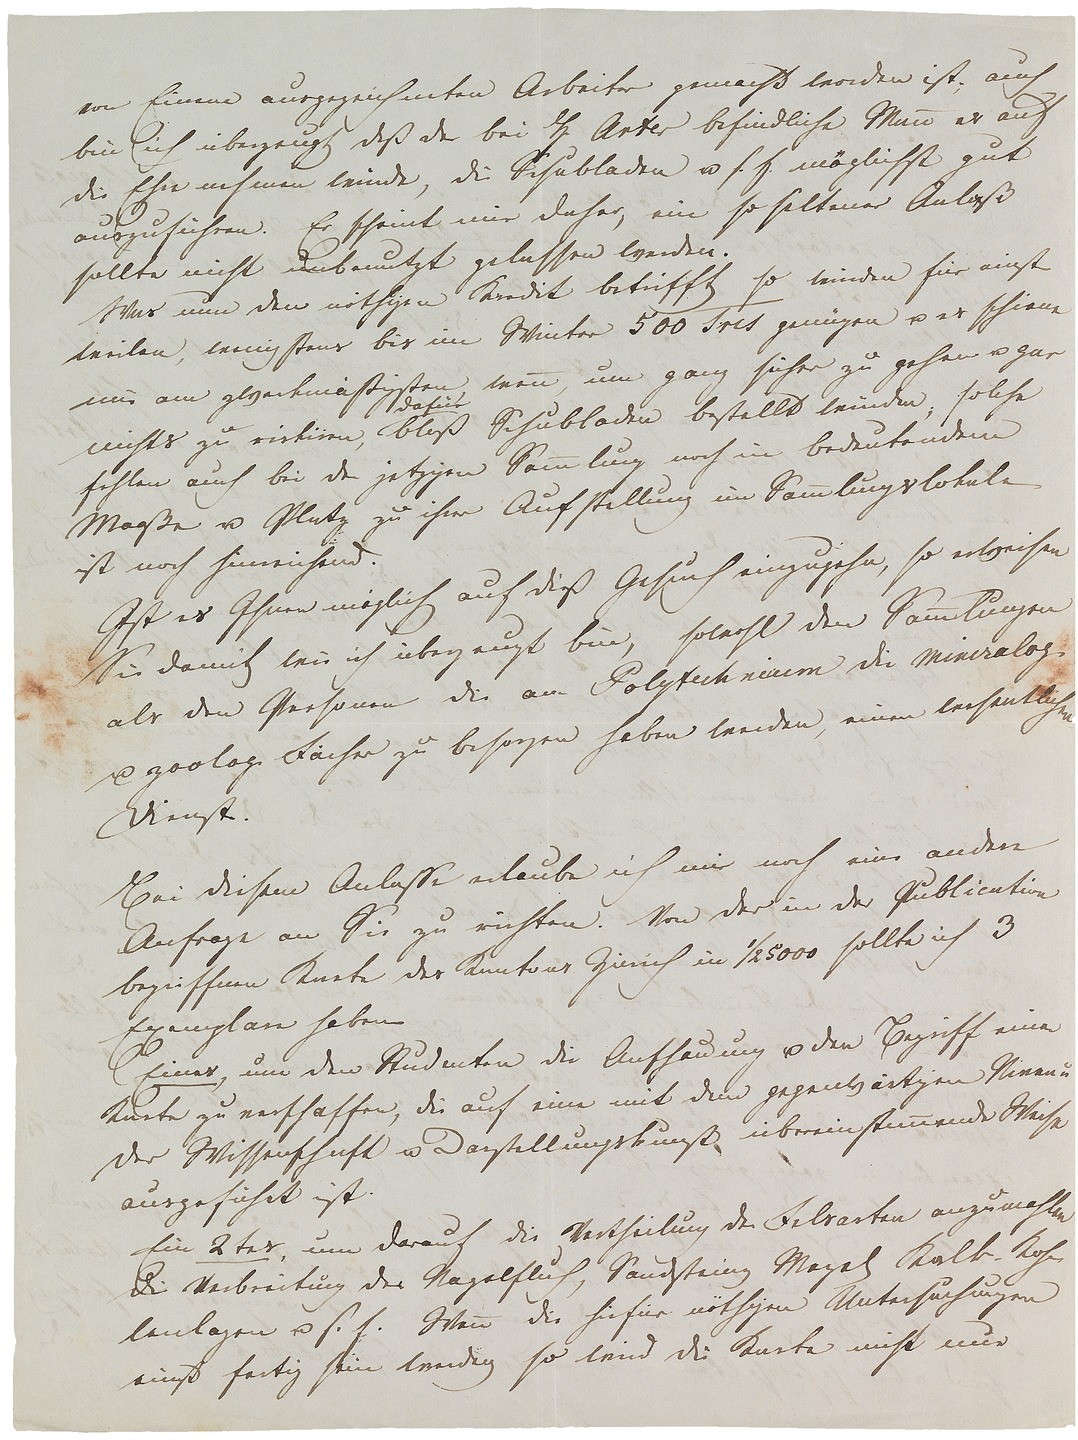 von Einem ausgezeichneten Arbeiter gemacht worden ist; auch
bin ich überzeugt daß der bei H. Arter befindliche Mann es auf
die Ehre nehmen würde, die Schubladen u. s. f. möglichst gut
auszuführen. Es scheint mir daher, ein so seltener Anlaß
sollte nicht unbenutzt gelassen werden.
Was nun den nöthigen Kredit betrifft so würden für einst
weilen, wenigstens bis im Winter 500 Frcs genügen u es schiene
mir am zweckmäßigsten, wenn, um ganz sicher zu gehen u gar
nichts zu riskiren, dafür bloß Schubladen bestellt würden; solche
fehlen auch bei der jetzigen Sammlung noch in bedeutendem
Maaße u Platz zu ihrer Aufstellung im Sammlungslokale
ist noch hinreichend.
Ist es Ihnen möglich auf dieß Gesuch einzugehn, so erweisen
Sie damit wie ich überzeugt bin, sowohl den Sammlungen
als den Personen die am Polytechnicum die mineralog.
u zoolog. Fächer zu besorgen haben werden, einen wesentlichen
Dienst.
Bei diesem Anlasse erlaube ich mir noch eine andere
Anfrage an Sie zu richten. Von der in der Publication
begriffnen Karte des Kantons Zürich in 1/25000 sollte ich 3
Exemplare haben
Eines, um den Studenten die Anschauung u den Begriff einer
Karte zu verschaffen, die auf eine mit dem gegenwärtigen Niveau
der Wissenschaft u Darstellungskunst übereinstimmende Weise
ausgeführt ist.
Ein 2tes, um darauf die Vertheilung der Felsarten anzumahlen
Die Verbreitung der Nagelfluh, Sandstein, Mergel, Kalk- Koh-
lenlagen u. s. f. Wenn die hiefür nöthigen Untersuchungen
einst fertig sein werden so wird die Karte nicht nur